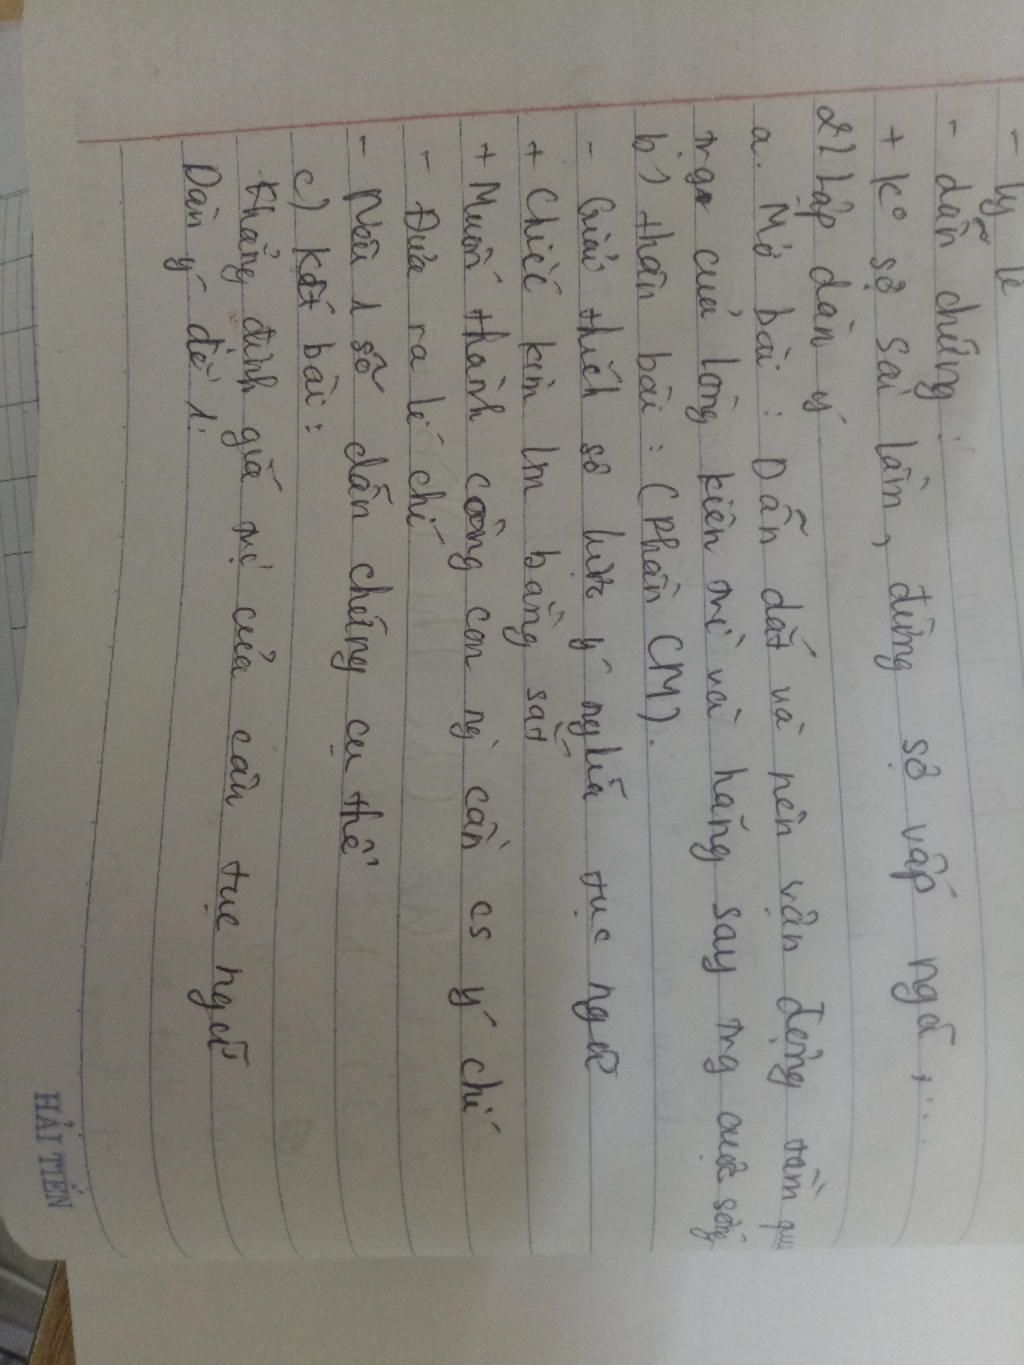 - lý lẽ
- dẫn chứng:
+ ko sợ sai lầm, đừng sợ vấp ngã, ...
2) Lập dàn ý
a. Mở bài: Dẫn dắt và nên vận động tầm qua
trọ của lòng kiên trì và hăng say trg cuộc sống
b) thân bài: (Phần CM).
- Giải thích sơ lược ý nghĩa tục ngữ
+ Chiếc kim lm bằng sắt
+ Muốn thành công con ng` cần cs ý chí
- Đưa ra lí chí
- Nêu 1 số dẫn chứng cụ thể
c) kết bài:
Khẳng định giá trị của câu tục ngữ
Dàn ý đề 1:
HẢI TIẾN